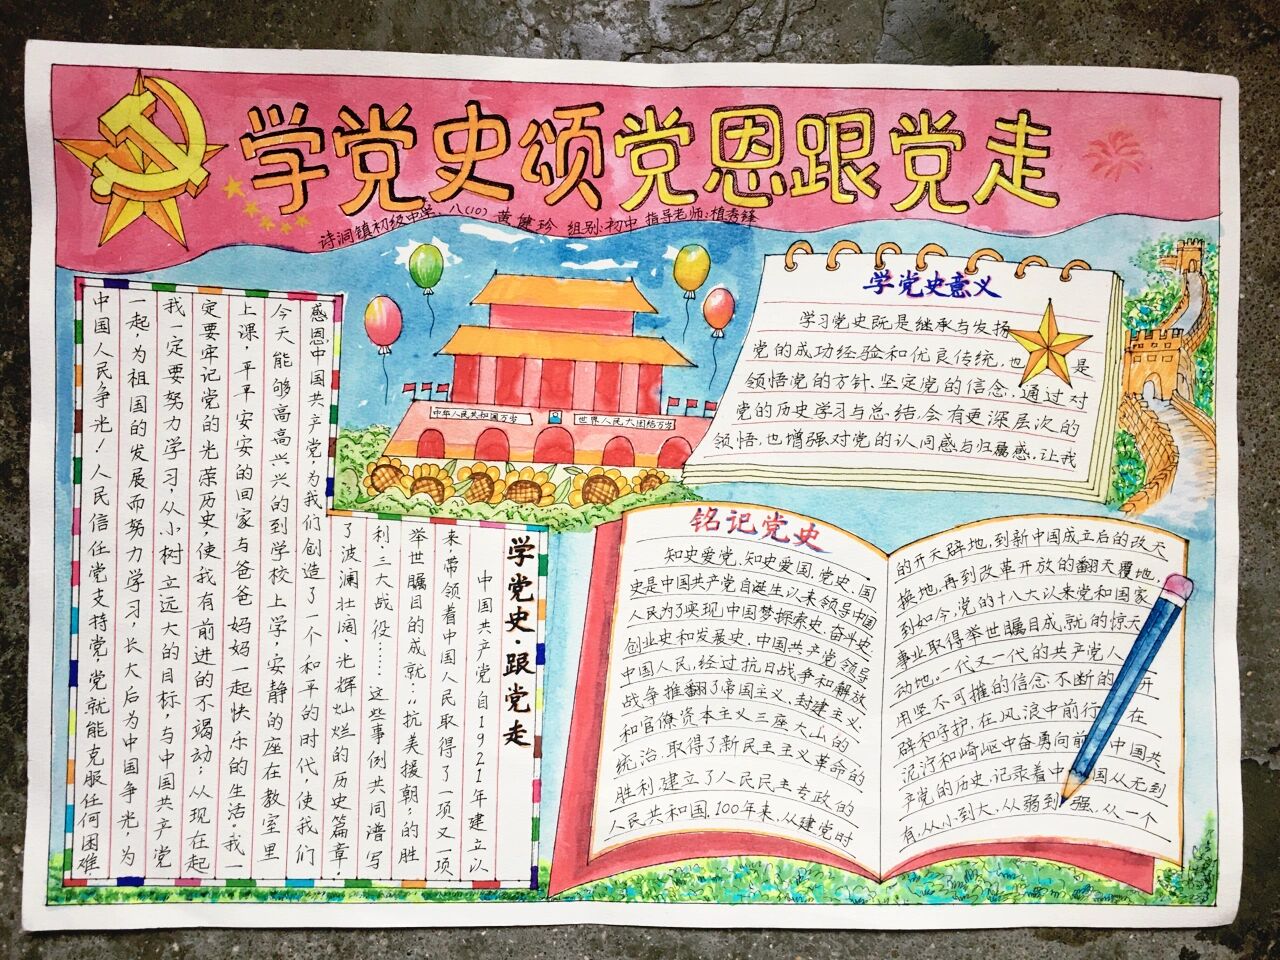 学党史颂党恩跟党走
诗洞镇初级中学、八(10) 黄健珍 组别:初中 指导老师:植秀锋
中华人民共和国万岁
世界人民大团结万岁
学党史意义
学习党史既是继承与发扬
党的成功经验和优良传统,也是
领悟党的方针、坚定党的信念,通过对
党的历史学习与总结,会有更深层次的
领悟,也增强对党的认同感与归属感,让我
学党史·跟党走
中国共产党自1921年建立以
来,带领着中国人民取得了一项又一项
举世瞩目的成就:抗美援朝;的胜
利,三大战役……这些事例共同谱写
了波澜壮阔,光辉灿烂的历史篇章,
感恩中国共产党,为我们创造了一个和平的时代,使我们
今天能够高高兴兴的到学校上学,安静的座在教室里
上课,平平安安的回家与爸爸妈妈一起快乐的生活。我一
定要牢记党的光荣历史,使我有前进的不竭动;从现在起
我一定要努力学习,从小树立远大的目标,与中国共产党
一起,为祖国的发展而努力学习,长大后为中国争光,为
中国人民争光!人民信任党支持党,党就能克服任何困难
铭记党史
知史爱党,知史爱国,党史、国
史是中国共产党自诞生以来领导中国
人民为了实现中国梦探索史、奋斗史、
创业史和发展史,中国共产党领导
中国人民,经过抗日战争和解放
战争推翻了帝国主义、封建主义
和官僚资本主义三座大山的
统治,取得了新民主主义革命的
胜利,建立了人民民主专政的
人民共和国,100年来,从建党时
的开天辟地,到新中国成立后的改天
换地,再到改革开放的翻天覆地,
到如今,党的十八大以来党和国家
事业取得举世瞩目成,就的惊天
动地。一代又一代的共产党人
用坚不可摧的信念不断的开
辟和守护,在风浪中前行,在
泥泞和崎岖中奋勇向前,中国共
产党的历史,记录着中国从无到
有,从小到大,从弱到强,从一个